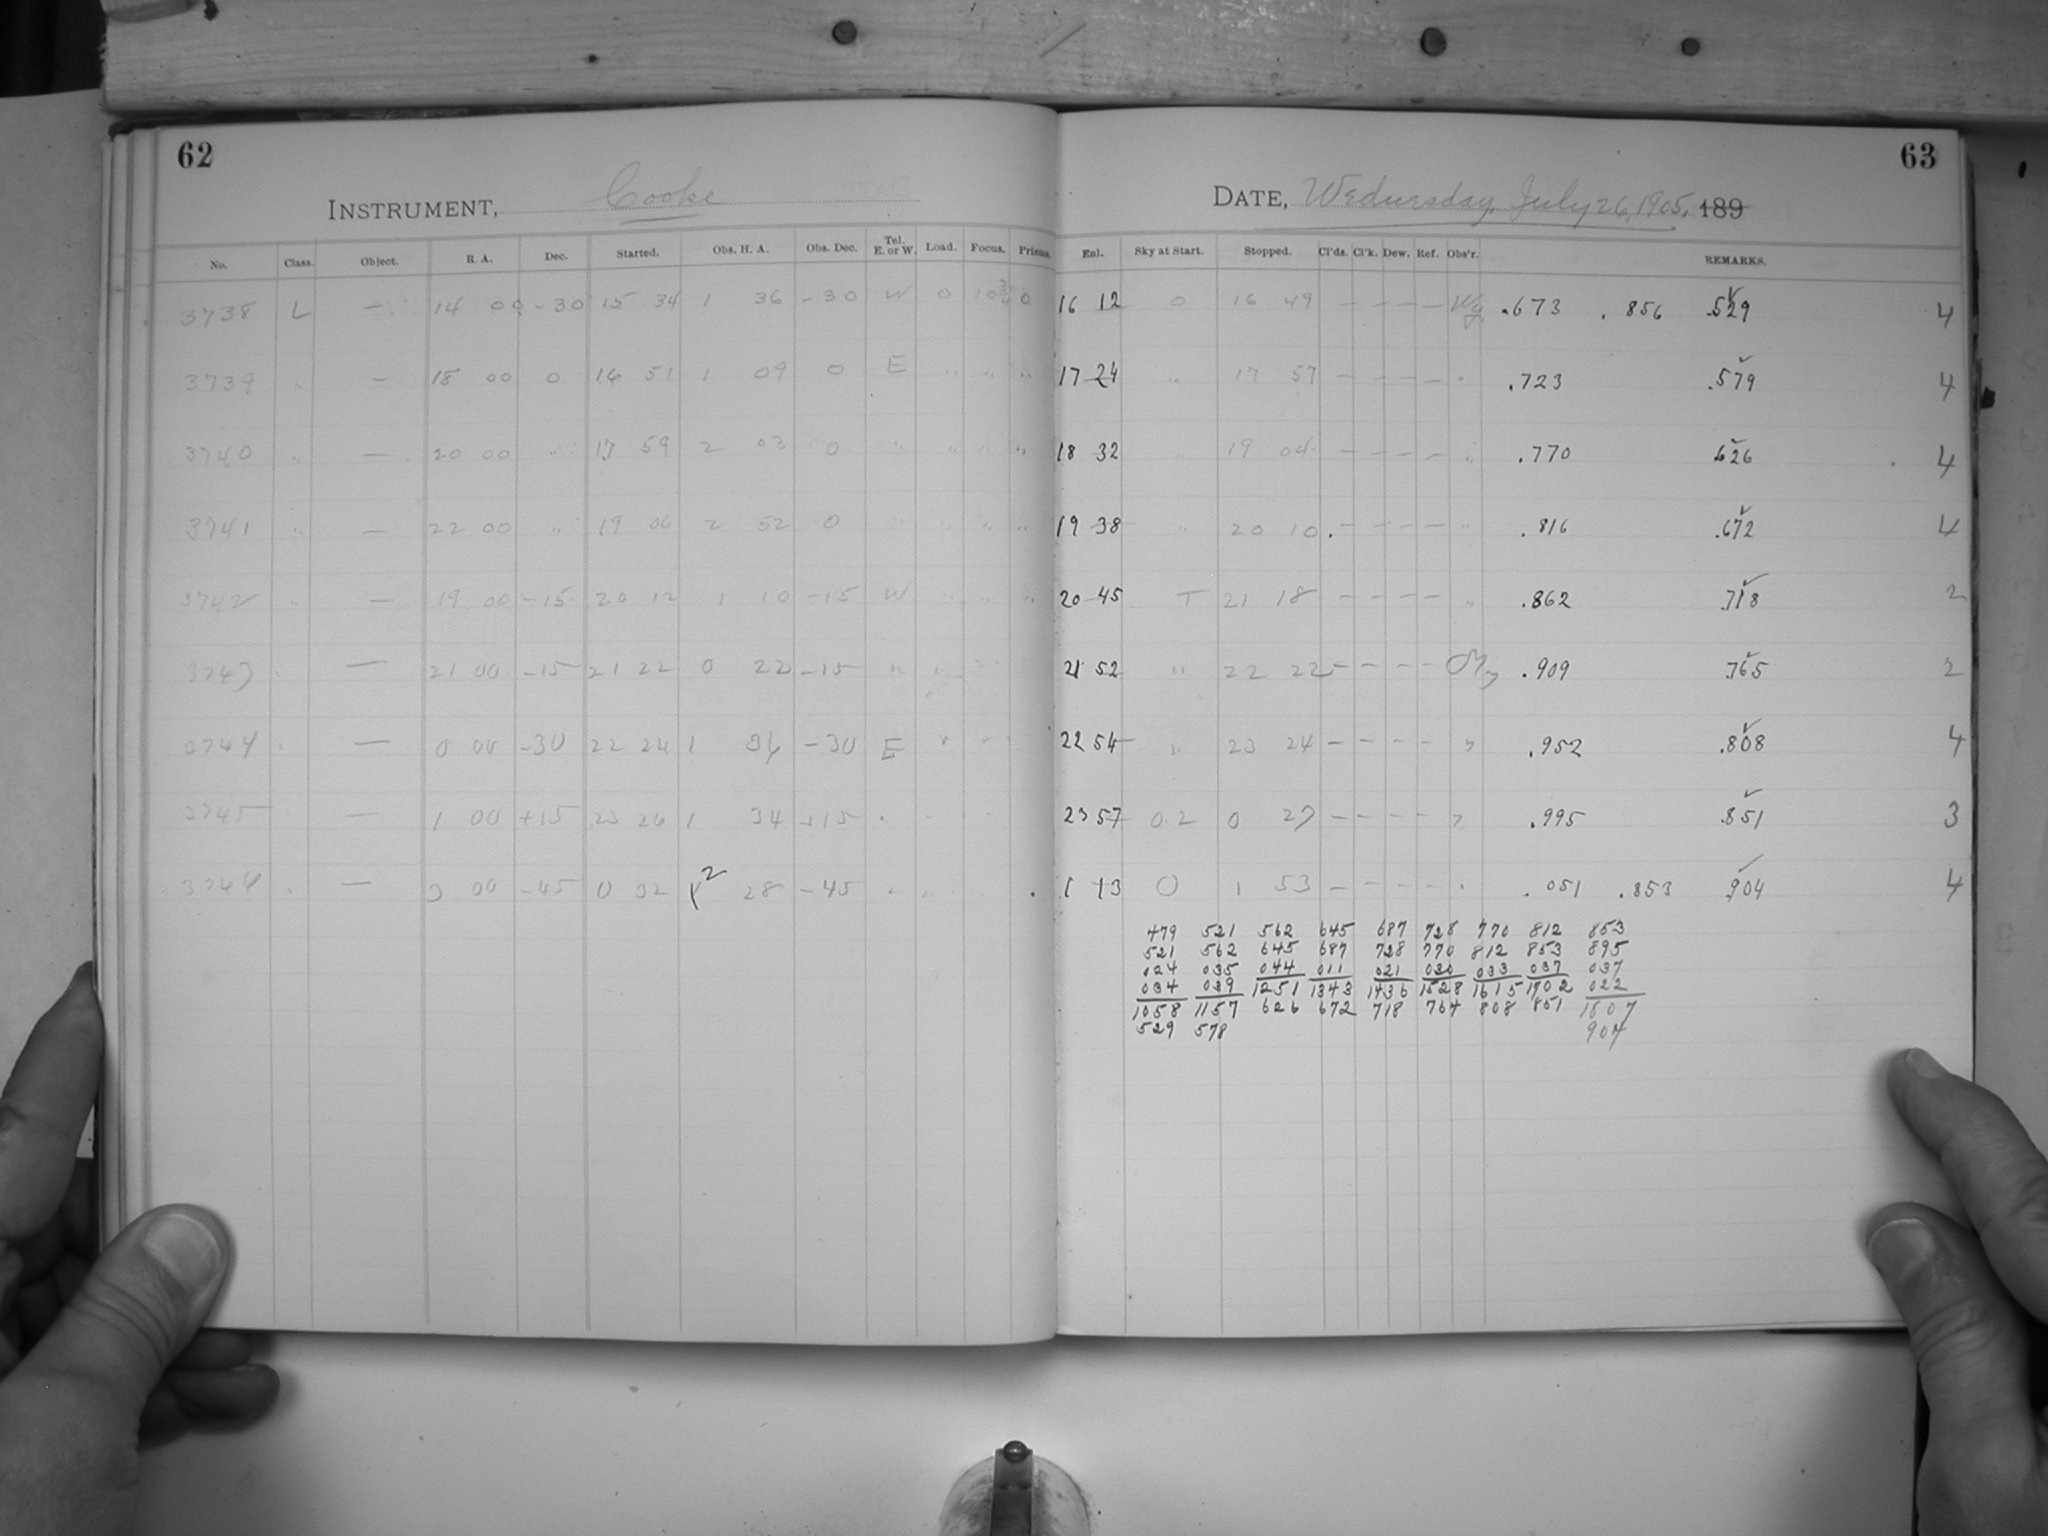 62
INSTRUMENT, Cooke
No. Class. Object. R. A. Dec. Started. Obs. H. A. Obs. Dec. Tel. E. or W. Load. Focus. Prisms.
3738 L — 14 00 -30 15 34 1 36 -30 W 0 10 3/4 0
3739 " — 18 00 0 16 51 1 09 0 E " " "
3740 " — 20 00 " 17 59 2 03 0 " " " "
3741 " — 22 00 " 19 06 2 52 0 " " " "
3742 " — 19 00 -15 20 12 1 10 -15 W " " "
3743 " — 21 00 -15 21 22 0 22 -15 " "
3744 " — 0 00 -30 22 24 1 34 -30 E "
3745 " — 1 00 +15 23 26 1 34 +15 "
— 3 00 -45 0 32 2 28 -45 "
63
DATE, Wednesday, July 26, 1905. 189
Enl. Sky at Start. Stopped. Cl'ds. Cl'k. Dew. Ref. Obs'r. REMARKS.
16 12 0 16 49 — — — — .673 .856 .529 4
17 24 " 17 57 — — — — " .723 .579 4
18 32 " 19 04 — — — — " .770 626 4
19 38 " 20 10 — — — — " .816 .672 4
20 45 T 21 18 — — — — " .862 .718 2
21 52 " 22 22 — — — — .909 .765 2
22 54 " 23 24 — — — — " .952 .808 4
23 57 0.2 0 27 — — — — " .995 .851 3
1 13 0 1 53 — — — — " .051 .853 .904 4
479 521 562 645 687 728 770 812 853
521 562 645 687 728 770 812 853 895
024 035 044 011 021 030 033 037 037
034 039 1251 1343 1436 1528 1615 1702 022
1058 1157 626 672 718 764 808 851 1807
529 578 904